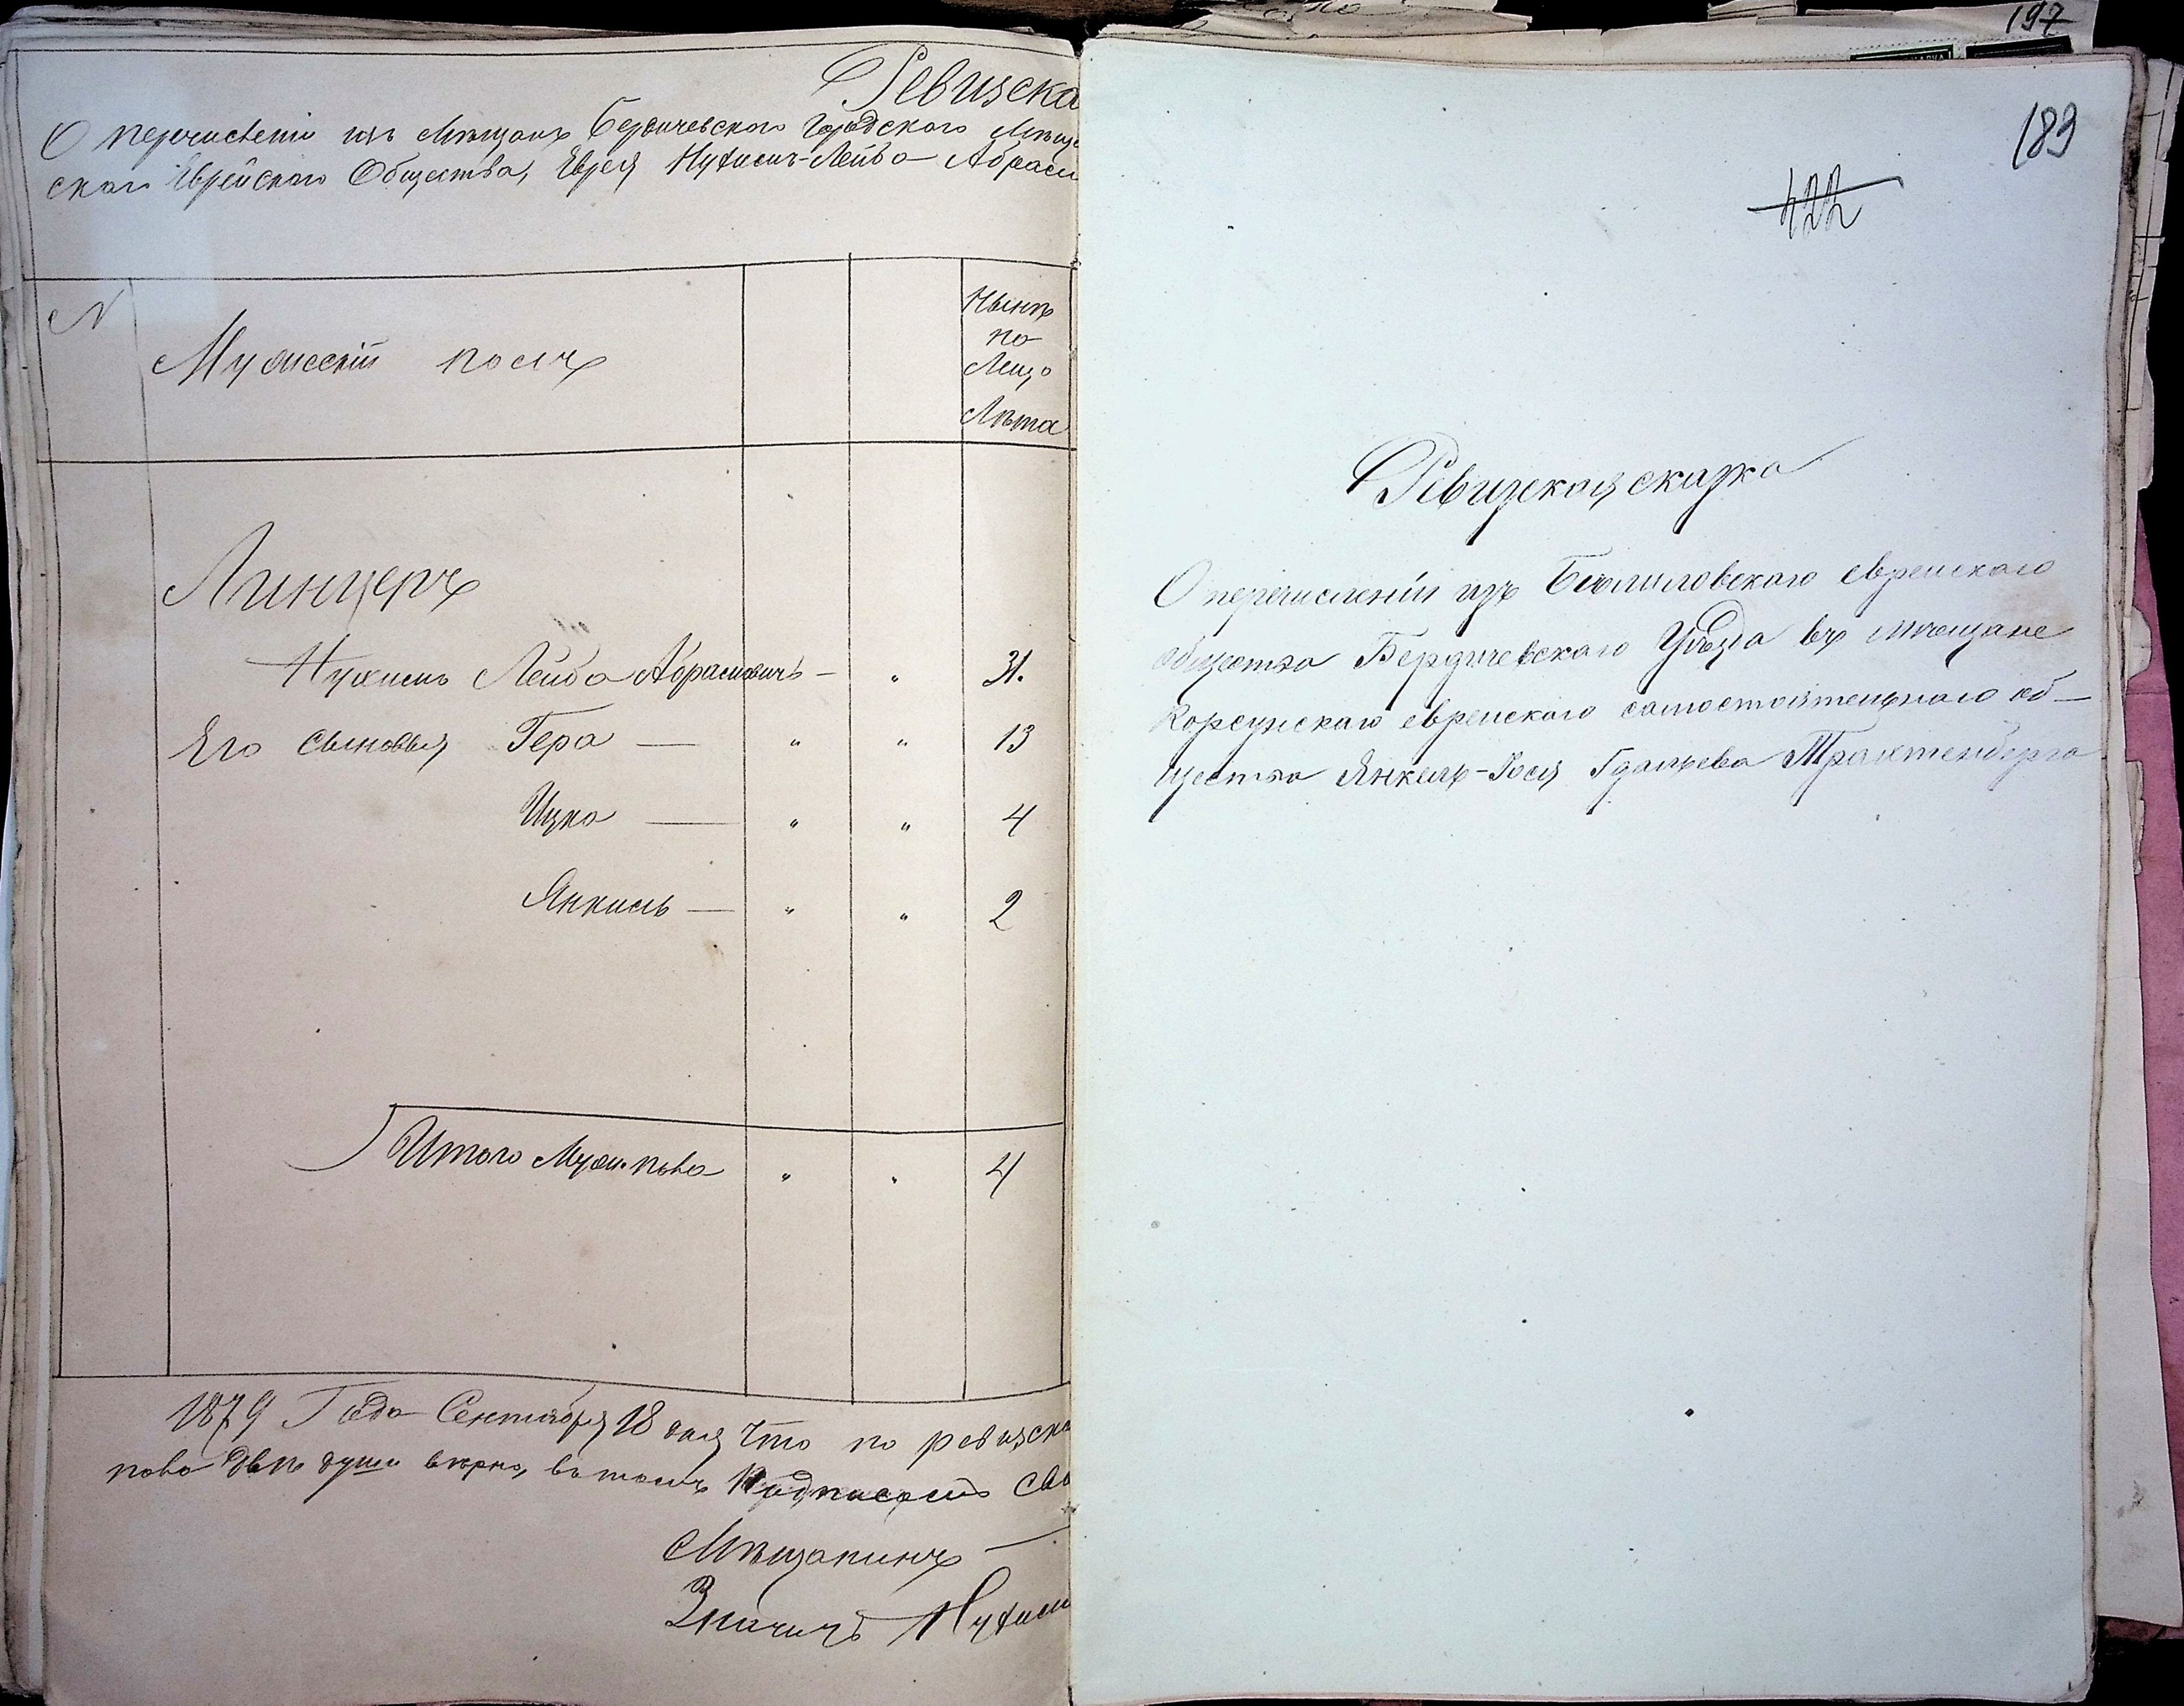 Ревизска
О перечислении изъ Мѣщанъ Бердичевского Городского Мѣще
скаго Еврейскаго Общества, Еврея Нухимъ-Лейба Абрам
N
Мужескій полъ
Нынѣ
по
Лицо
Лѣта
Линцеръ
Нухимъ Лейба Абрамовичъ — " 31.
Его сыновья Гера — " " 13
Ицко — " " 4
Янкель — " " 2
Итого Муж. пола " " 4
1879 Года Сентября 18 дня Что по ревизска
пола двѣ души вѣрно, въ томъ Подписомъ сво
Мѣщанинъ —
Нухим
197
189
422
Ревизская сказка
О перечисленіи изъ Бѣлиловскаго еврейскаго
общества Бердичевскаго Уѣзда въ мѣщане
Корсунскаго еврейскаго самостоятельнаго об—
щества Янкель-Йося Гдальева Трахтенберга